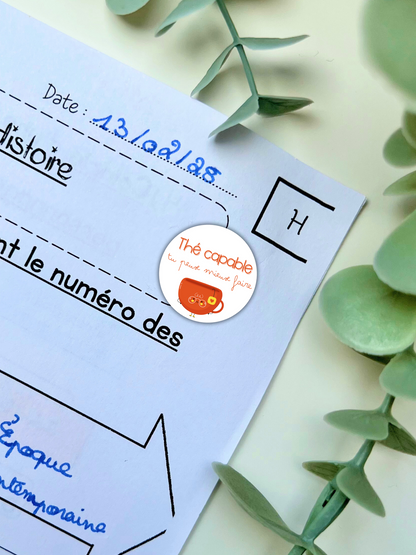 Date : 13/02/25
Histoire
H
Thé capable
tu peux mieux faire
nt le numéro des
Époque
ntemporaine